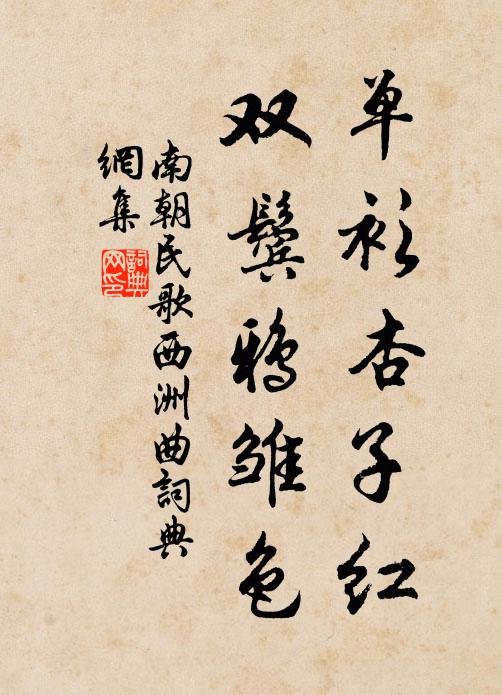 单衫杏子红
双鬓鸦雏色
南朝民歌西洲曲詞典
網集
詞典
网印